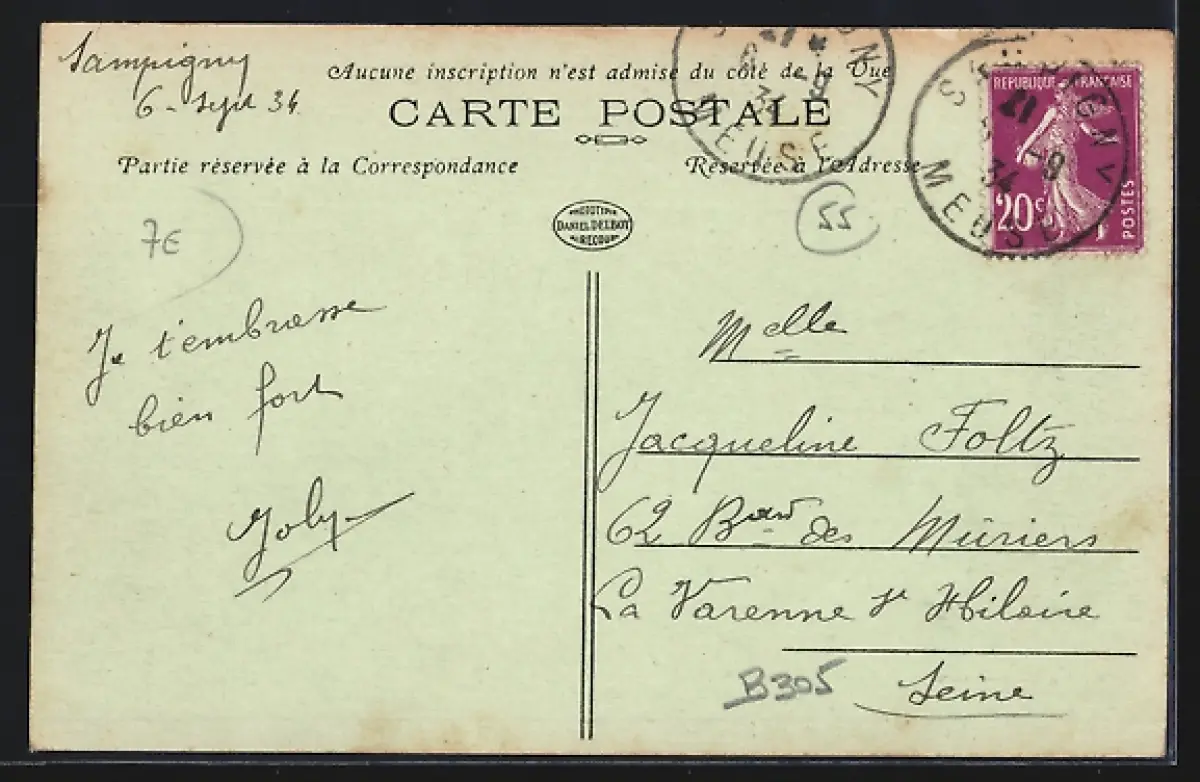 Sampigny
6 - Sept 34
Aucune inscription n'est admise du côté de la Vue
CARTE POSTALE
Partie réservée à la Correspondance
Réservée à l'Adresse
MEUSE
RÉPUBLIQUE FRANÇAISE
20c
POSTES
MEUSE
7€
55
DANIEL DELBOY
Je t'embrasse
bien fort
Melle
Jacqueline Foltz
62 Bard des Mûriers
La Varenne St Hilaire
B305
Seine